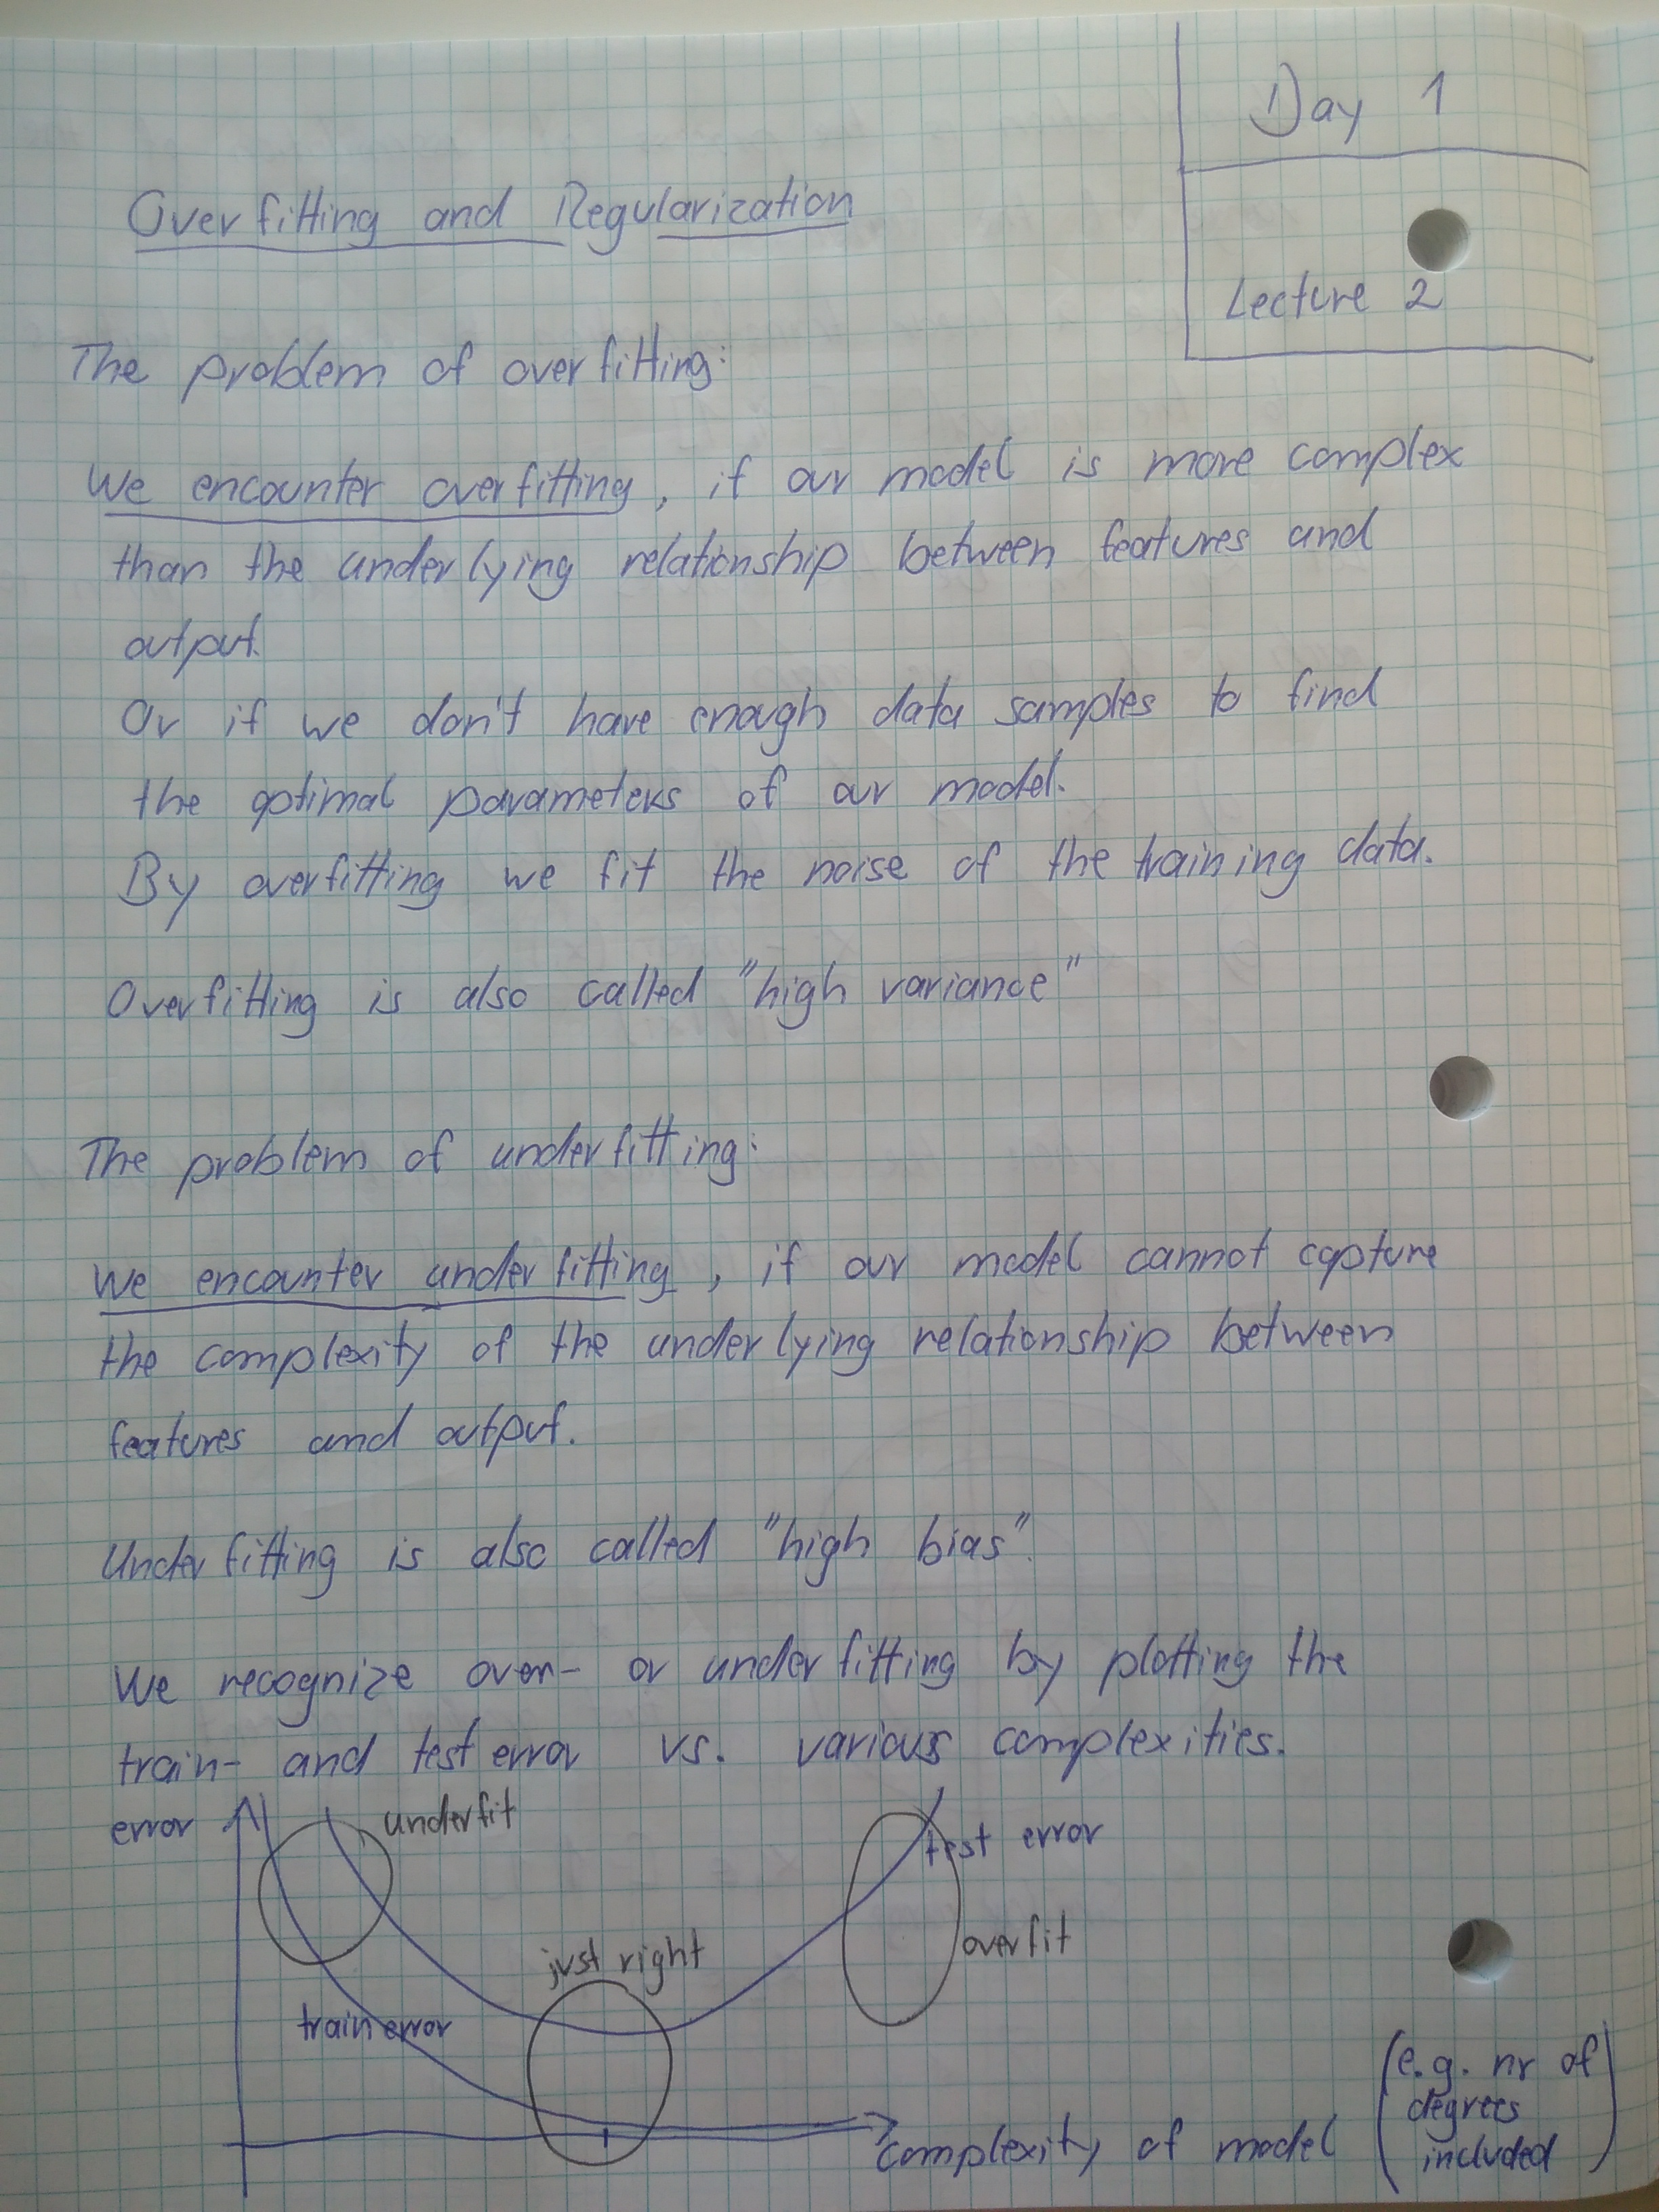 Day 1
Overfitting and Regularization
Lecture 2
The problem of overfitting:
We encounter overfitting, if our model is more complex
than the underlying relationship between features and
output.
Or if we don't have enough data samples to find
the optimal parameters of our model.
By overfitting we fit the noise of the training data.
Overfitting is also called "high variance"
The problem of underfitting:
We encounter underfitting, if our model cannot capture
the complexity of the underlying relationship between
features and output.
Underfitting is also called "high bias".
We recognize over- or underfitting by plotting the
train- and test error vs. various complexities.
error
underfit
test error
overfit
just right
train error
complexity of model
(e.g. nr of
degrees
included)